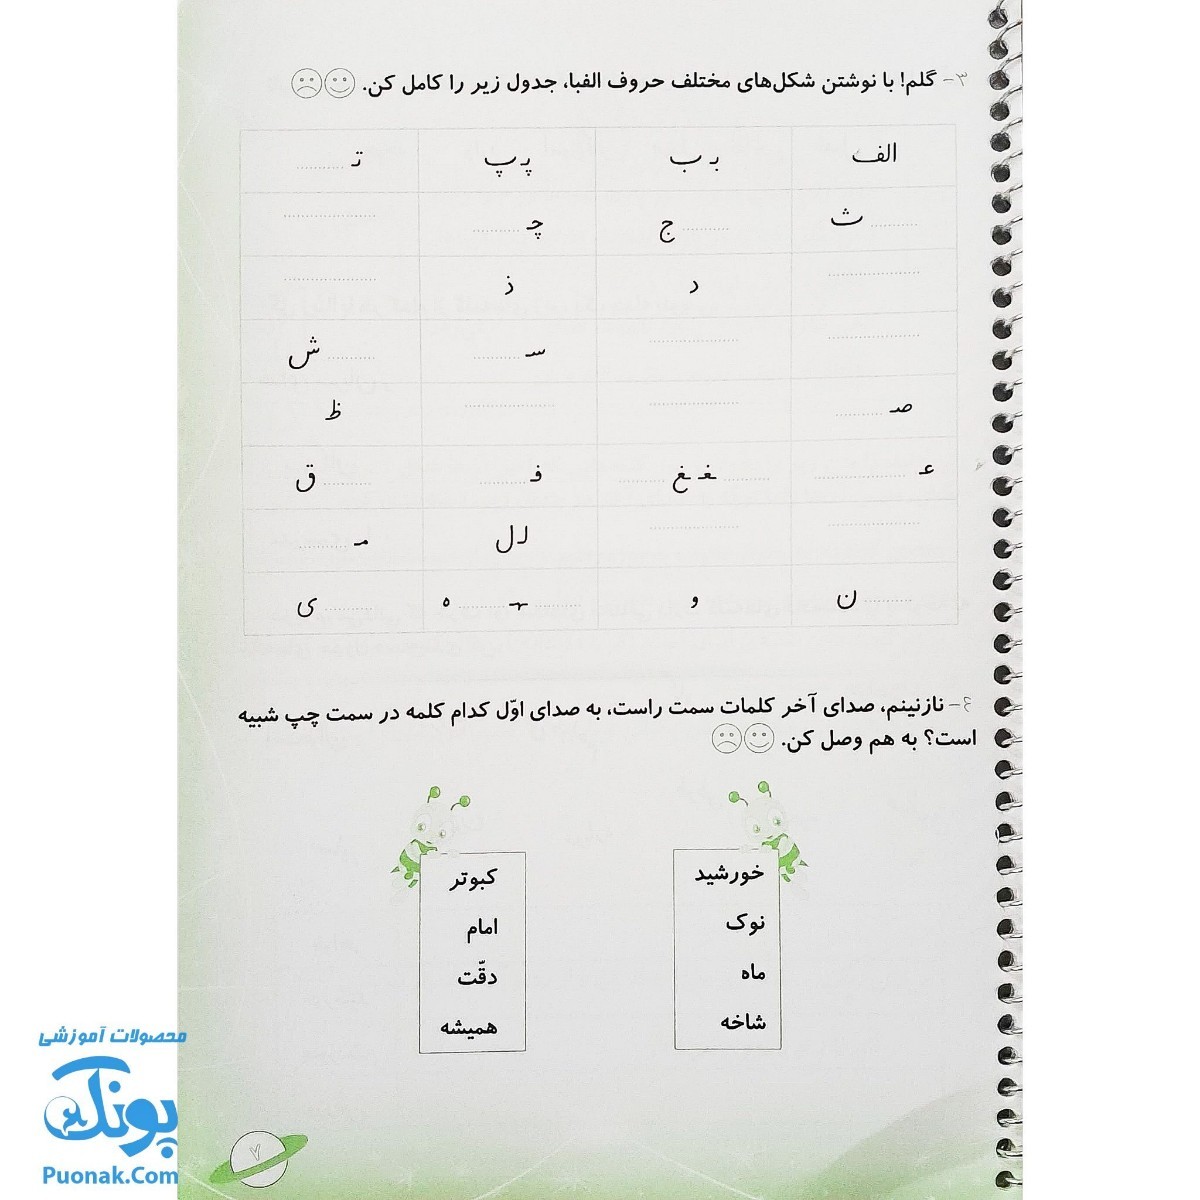 ۳- گلم! با نوشتن شکل‌های مختلف حروف الفبا، جدول زیر را کامل کن.
الف	بـ ب	پـ پ	تـ ........
........ ث	........ ج	چـ ........	........
........	د	ذ	........
........	........	سـ ........	........ ش
صـ ........	........	........	ظ
عـ ........	........ ـغـ ـغ ........	فـ ........	........ ق
........	........	لـ ل	مـ ........
........ ن	و	........ ـهـ ........ ه	........ ی
٤- نازنینم، صدای آخر کلمات سمت راست، به صدای اوّل کدام کلمه در سمت چپ شبیه
است؟ به هم وصل کن.
خورشید	کبوتر
نوک	امام
ماه	دقّت
شاخه	همیشه
۷
محصولات آموزشی
پونک
Puonak.Com